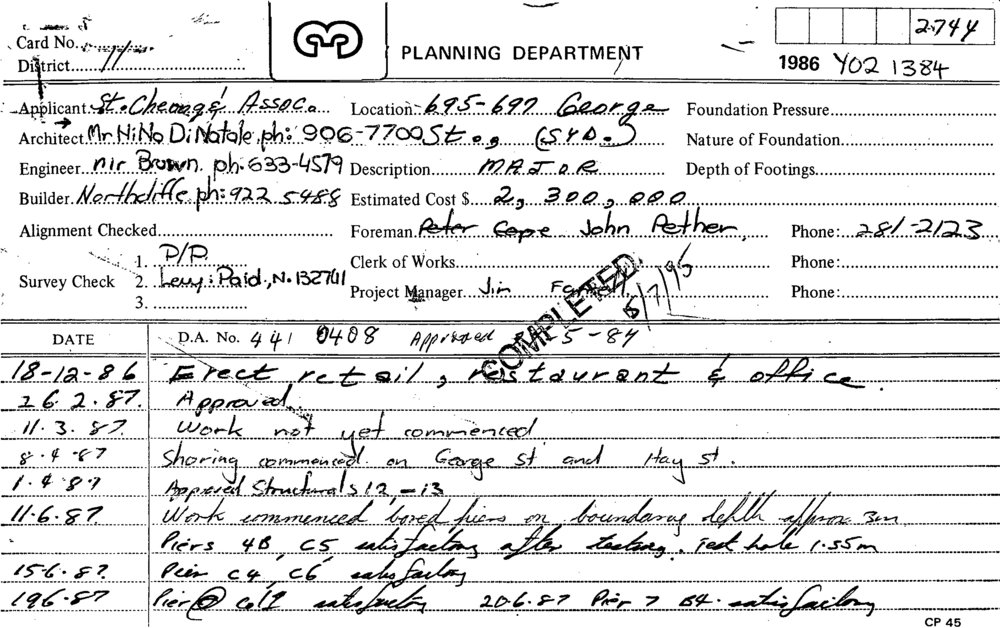 2744
Card No.
PLANNING DEPARTMENT
District 11
1986 Y02 1384
Applicant St. Cheong & Assoc. Location 695-697 George Foundation Pressure
Architect Mr Nino Di Natale ph: 906-7700 St., (SYD.) Nature of Foundation
Engineer Mr Brown. ph. 633-4579 Description MAJOR Depth of Footings
Builder Northcliffe ph: 922 5488 Estimated Cost $ 2,300,000
Alignment Checked Foreman Peter Cope John Pether, Phone: 281-2123
1. P/P. Clerk of Works Phone:
Survey Check 2. Levy: Paid, N. 132741 Project Manager Jim Phone:
3.
COMPLETED 5/7/95
DATE D.A. No. 441 0408 Approved 5-84
18-12-86 Erect retail, restaurant & office.
26.2.87. Approved.
11.3.87. Work not yet commenced
8.4.87 Shoring commenced on George St and Hay St.
1.4.87 Approved Structurals 12, -13
11.6.87. Work commenced bored piers on boundary depth approx 3m
Piers 4B, C5 satisfactory after testing. Test hole 1.55m
15.6.87. Pier C4, C6 satisfactory
19.6.87 Pier @ satisfactory 20.6.87 Pier 7 B4. satisfactory
CP 45